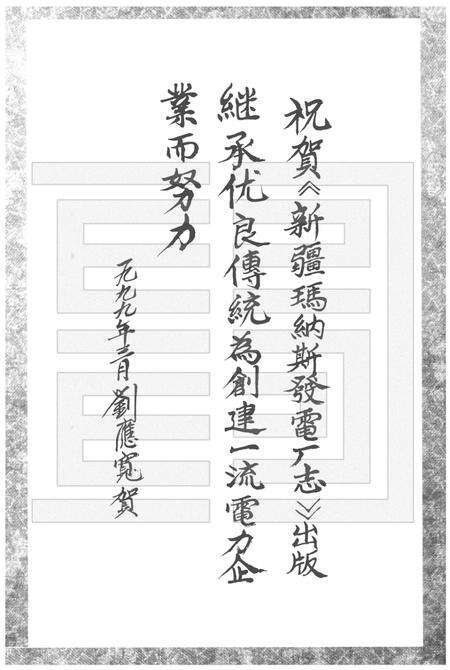 祝賀《新疆瑪納斯發電厂志》出版
継承优良傳統為創建一流電力企
業而努力
一九九九年三月劉應寬賀